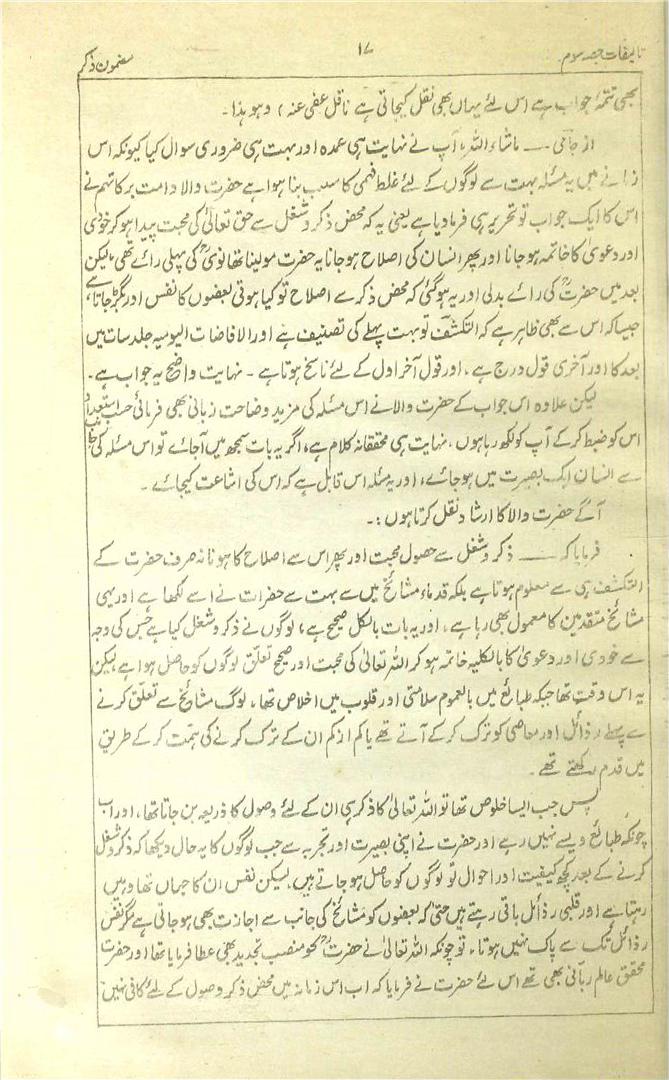 تالیفات حصہ سوم
۱۷
مضمون ذکر
بھی تتمۂ جواب ہے اس لئے یہاں بھی نقل کیجاتی ہے (ناقل عفی عنہ) وہو ہذا۔
از جامی — ماشاء اللہ، آپ نے نہایت ہی عمدہ اور بہت ہی ضروری سوال کیا کیونکہ اس
زمانے میں یہ مسئلہ بہت سے لوگوں کے لئے غلط فہمی کا سبب بنا ہوا ہے حضرت والا دامت برکاتہم نے
اس کا ایک جواب تو تحریر ہی فرمادیا ہے یعنی یہ کہ محض ذکر و شغل سے حق تعالیٰ کی محبت پیدا ہوکر خودی
اور دعویٰ کا خاتمہ ہوجانا اور پھر انسان کی اصلاح ہوجانا یہ حضرت مولینا تھانویؒ کی پہلی رائے تھی، لیکن
بعد میں حضرتؒ کی رائے بدلی اور یہ ہوگئی کہ محض ذکر سے اصلاح تو کیا ہوتی بعضوں کا نفس اور بگڑ جاتا ہے
جیسا کہ اس سے بھی ظاہر ہے کہ التکشف تو بہت پہلے کی تصنیف ہے اور الافاضات الیومیہ جلد سات میں
بعد کا اور آخری قول درج ہے، اور قول آخر اول کے لئے ناسخ ہوتا ہے۔ نہایت واضح یہ جواب ہے۔
لیکن علاوہ اس جواب کے حضرت والا نے اس مسئلہ کی مزید وضاحت زبانی بھی فرمائی حسب استعداد
اس کو ضبط کرکے آپ کو لکھ رہا ہوں، نہایت ہی محققانہ کلام ہے، اگر یہ بات سمجھ میں آجائے تو اس مسئلہ کی جانب
سے انسان ایک بصیرت میں ہوجائے، اور یہ مسئلہ اس قابل ہے کہ اس کی اشاعت کیجائے۔
آگے حضرت والا کا ارشاد نقل کرتا ہوں :۔
فرمایا کہ — ذکر و شغل سے حصول محبت اور پھر اس سے اصلاح کا ہونا نہ صرف حضرت کے
التکشف ہی سے معلوم ہوتا ہے بلکہ قدماء مشائخ میں سے بہت سے حضرات نے اسے لکھا ہے اور یہی
مشائخ متقدمین کا معمول بھی رہا ہے، اور یہ بات بالکل صحیح ہے، لوگوں نے ذکر و شغل کیا ہے جس کی وجہ
سے خودی اور دعویٰ کا بالکلیہ خاتمہ ہوکر اللہ تعالیٰ کی محبت اور صحیح تعلق لوگوں کو حاصل ہوا ہے لیکن
یہ اس وقت تھا جبکہ طبائع میں بالعموم سلامتی اور قلوب میں اخلاص تھا، لوگ مشائخ سے تعلق کرنے
سے پہلے رذائل اور معاصی کو ترک کرکے آتے تھے یا کم از کم ان کے ترک کرنے کی ہمت کرکے طریق
میں قدم رکھتے تھے۔
پس جب ایسا خلوص تھا تو اللہ تعالیٰ کا ذکر ہی ان کے لئے وصول کا ذریعہ بن جاتا تھا، اور اب
چونکہ طبائع ویسے نہیں رہے اور حضرت نے اپنی بصیرت اور تجربہ سے جب لوگوں کا یہ حال دیکھا کہ ذکر و شغل
کرنے کے بعد کچھ کیفیت اور احوال تو لوگوں کو حاصل ہوجاتے ہیں، لیکن نفس ان کا جہاں تھا وہیں
رہتا ہے اور قلبی رذائل باقی رہتے ہیں حتیٰ کہ بعضوں کو مشائخ کی جانب سے اجازت بھی ہوجاتی ہے مگر نفس
رذائل تک سے پاک نہیں ہوتا، تو چونکہ اللہ تعالیٰ نے حضرتؒ کو منصب تجدید بھی عطا فرمایا تھا اور حضرت
محقق عالم ربانی بھی تھے اس لئے حضرت نے فرمایا کہ اب اس زمانہ میں محض ذکر وصول کے لئے کافی نہیں